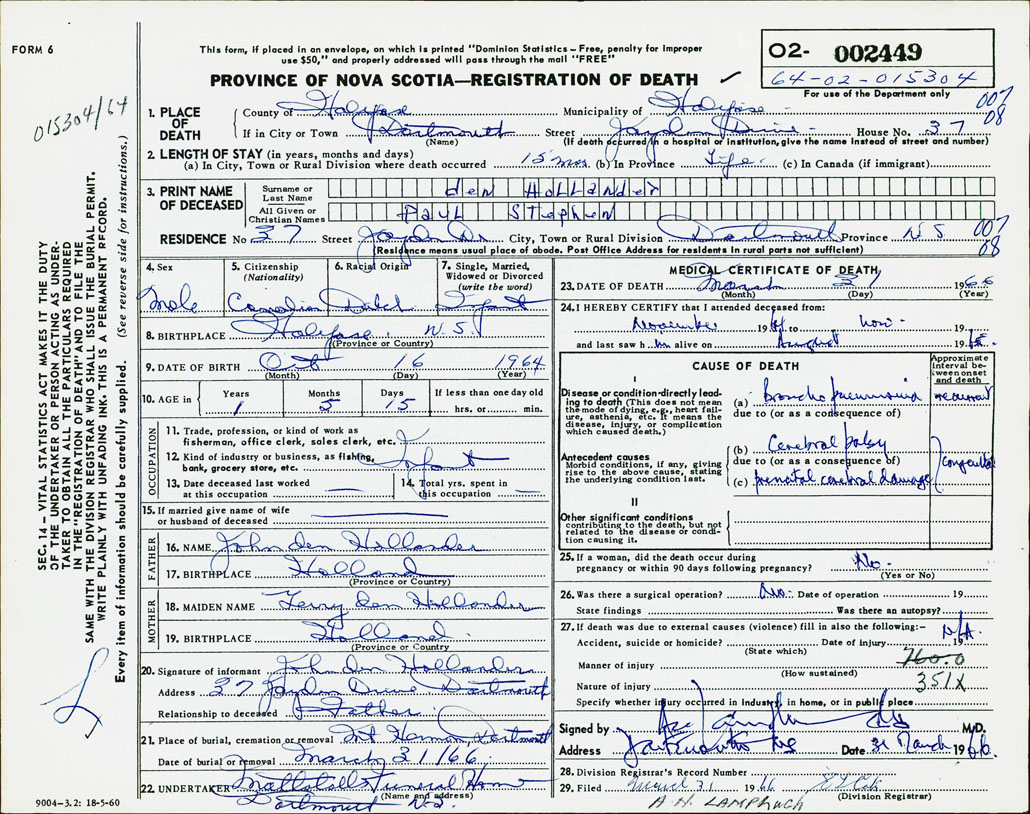 FORM 6
This form, if placed in an envelope, on which is printed "Dominion Statistics – Free, penalty for improper
use $50," and properly addressed will pass through the mail "FREE"
PROVINCE OF NOVA SCOTIA—REGISTRATION OF DEATH
O2- 002449
64-02-015304
For use of the Department only
015304/64
SEC. 14 – VITAL STATISTICS ACT MAKES IT THE DUTY
OF THE UNDERTAKER OR PERSON ACTING AS UNDER-
TAKER TO OBTAIN ALL THE PARTICULARS REQUIRED
IN THE "REGISTRATION OF DEATH" AND TO FILE THE
SAME WITH THE DIVISION REGISTRAR WHO SHALL ISSUE THE BURIAL PERMIT.
WRITE PLAINLY WITH UNFADING INK. THIS IS A PERMANENT RECORD.
Every item of information should be carefully supplied. (See reverse side for instructions.)
1. PLACE OF DEATH
County of Halifax Municipality of Halifax 007 08
If in City or Town Dartmouth Street Drive House No. 37
(Name) (If death occurred in a hospital or institution, give the name instead of street and number)
2. LENGTH OF STAY (in years, months and days)
(a) In City, Town or Rural Division where death occurred 15 mos. (b) In Province Life (c) In Canada (if immigrant)
3. PRINT NAME OF DECEASED
Surname or Last Name den Hollander
All Given or Christian Names Paul Stephen
RESIDENCE No 37 Street Dr City, Town or Rural Division Dartmouth Province N S 007 08
(Residence means usual place of abode. Post Office Address for residents in rural parts not sufficient)
4. Sex Male
5. Citizenship (Nationality) Canadian
6. Racial Origin Dutch
7. Single, Married, Widowed or Divorced (write the word) Infant
8. BIRTHPLACE Halifax N.S.
(Province or Country)
9. DATE OF BIRTH Oct 16 1964
(Month) (Day) (Year)
10. AGE in Years 1 Months 5 Days 15 If less than one day old hrs. or min.
OCCUPATION
11. Trade, profession, or kind of work as
fisherman, office clerk, sales clerk, etc.
12. Kind of industry or business, as fishing,
bank, grocery store, etc. Infant
13. Date deceased last worked
at this occupation
14. Total yrs. spent in
this occupation
15. If married give name of wife
or husband of deceased
FATHER
16. NAME John den Hollander
17. BIRTHPLACE Holland
(Province or Country)
MOTHER
18. MAIDEN NAME Terry den Hollander
19. BIRTHPLACE Holland
(Province or Country
20. Signature of informant John den Hollander
Address 37 Drive Dartmouth
Relationship to deceased Father
21. Place of burial, cremation or removal Mt Hermon, Dartmouth
Date of burial or removal March 31/66
22. UNDERTAKER Funeral Home
(Name and address)
Dartmouth N.S.
9004–3.2: 18-5-60
MEDICAL CERTIFICATE OF DEATH
23. DATE OF DEATH March 31 1966
(Month) (Day) (Year)
24. I HEREBY CERTIFY that I attended deceased from:
November 1964 to now 19
and last saw him alive on August 1965
CAUSE OF DEATH
Approximate interval between onset and death
I
Disease or condition directly leading to death (This does not mean the mode of dying, e.g., heart failure, asthenia, etc. It means the disease, injury, or complication which caused death.)
(a) Broncho pneumonia recurrent
due to (or as a consequence of)
Antecedent causes
Morbid conditions, if any, giving rise to the above cause, stating the underlying condition last.
(b) Cerebral palsy
due to (or as a consequence of) congenital
(c) prenatal cerebral damage
II
Other significant conditions
contributing to the death, but not related to the disease or condition causing it.
25. If a woman, did the death occur during
pregnancy or within 90 days following pregnancy? No.
(Yes or No)
26. Was there a surgical operation? No. Date of operation 19
State findings Was there an autopsy?
27. If death was due to external causes (violence) fill in also the following:– N/A.
Accident, suicide or homicide? Date of injury 19
(State which)
Manner of injury 760.0
(How sustained) 351X
Nature of injury
Specify whether injury occurred in industry, in home, or in public place
Signed by M.D.
Address Dartmouth NS Date 31 March 1966
28. Division Registrar's Record Number
29. Filed March 31 1966
(Division Registrar)